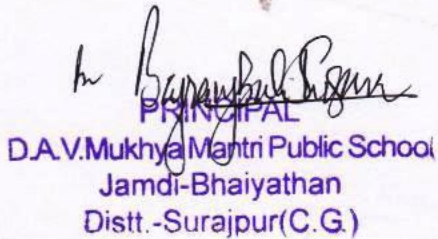 PRINCIPAL
D.A.V.Mukhya Mantri Public School
Jamdi-Bhaiyathan
Distt.-Surajpur(C.G.)